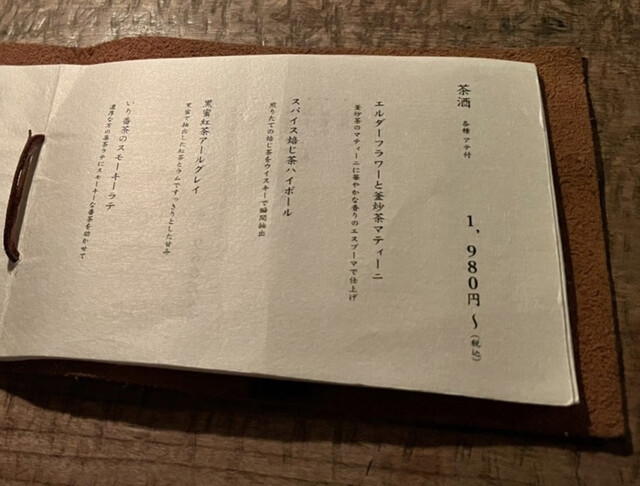 茶酒 各種アテ付 1,980円〜(税込)
エルダーフラワーと釜炒茶マティーニ
釜炒茶のマティーニに華やかな香りのエスプーマで仕上げ
スパイス焙じ茶ハイボール
煎りたての焙じ茶をウイスキーで瞬間抽出
黒蜜紅茶アールグレイ
黒蜜で抽出した紅茶とラムですっきりとした甘み
いり番茶のスモーキーラテ
濃厚な方の抹茶ラテにスモーキーな番茶を効かせて